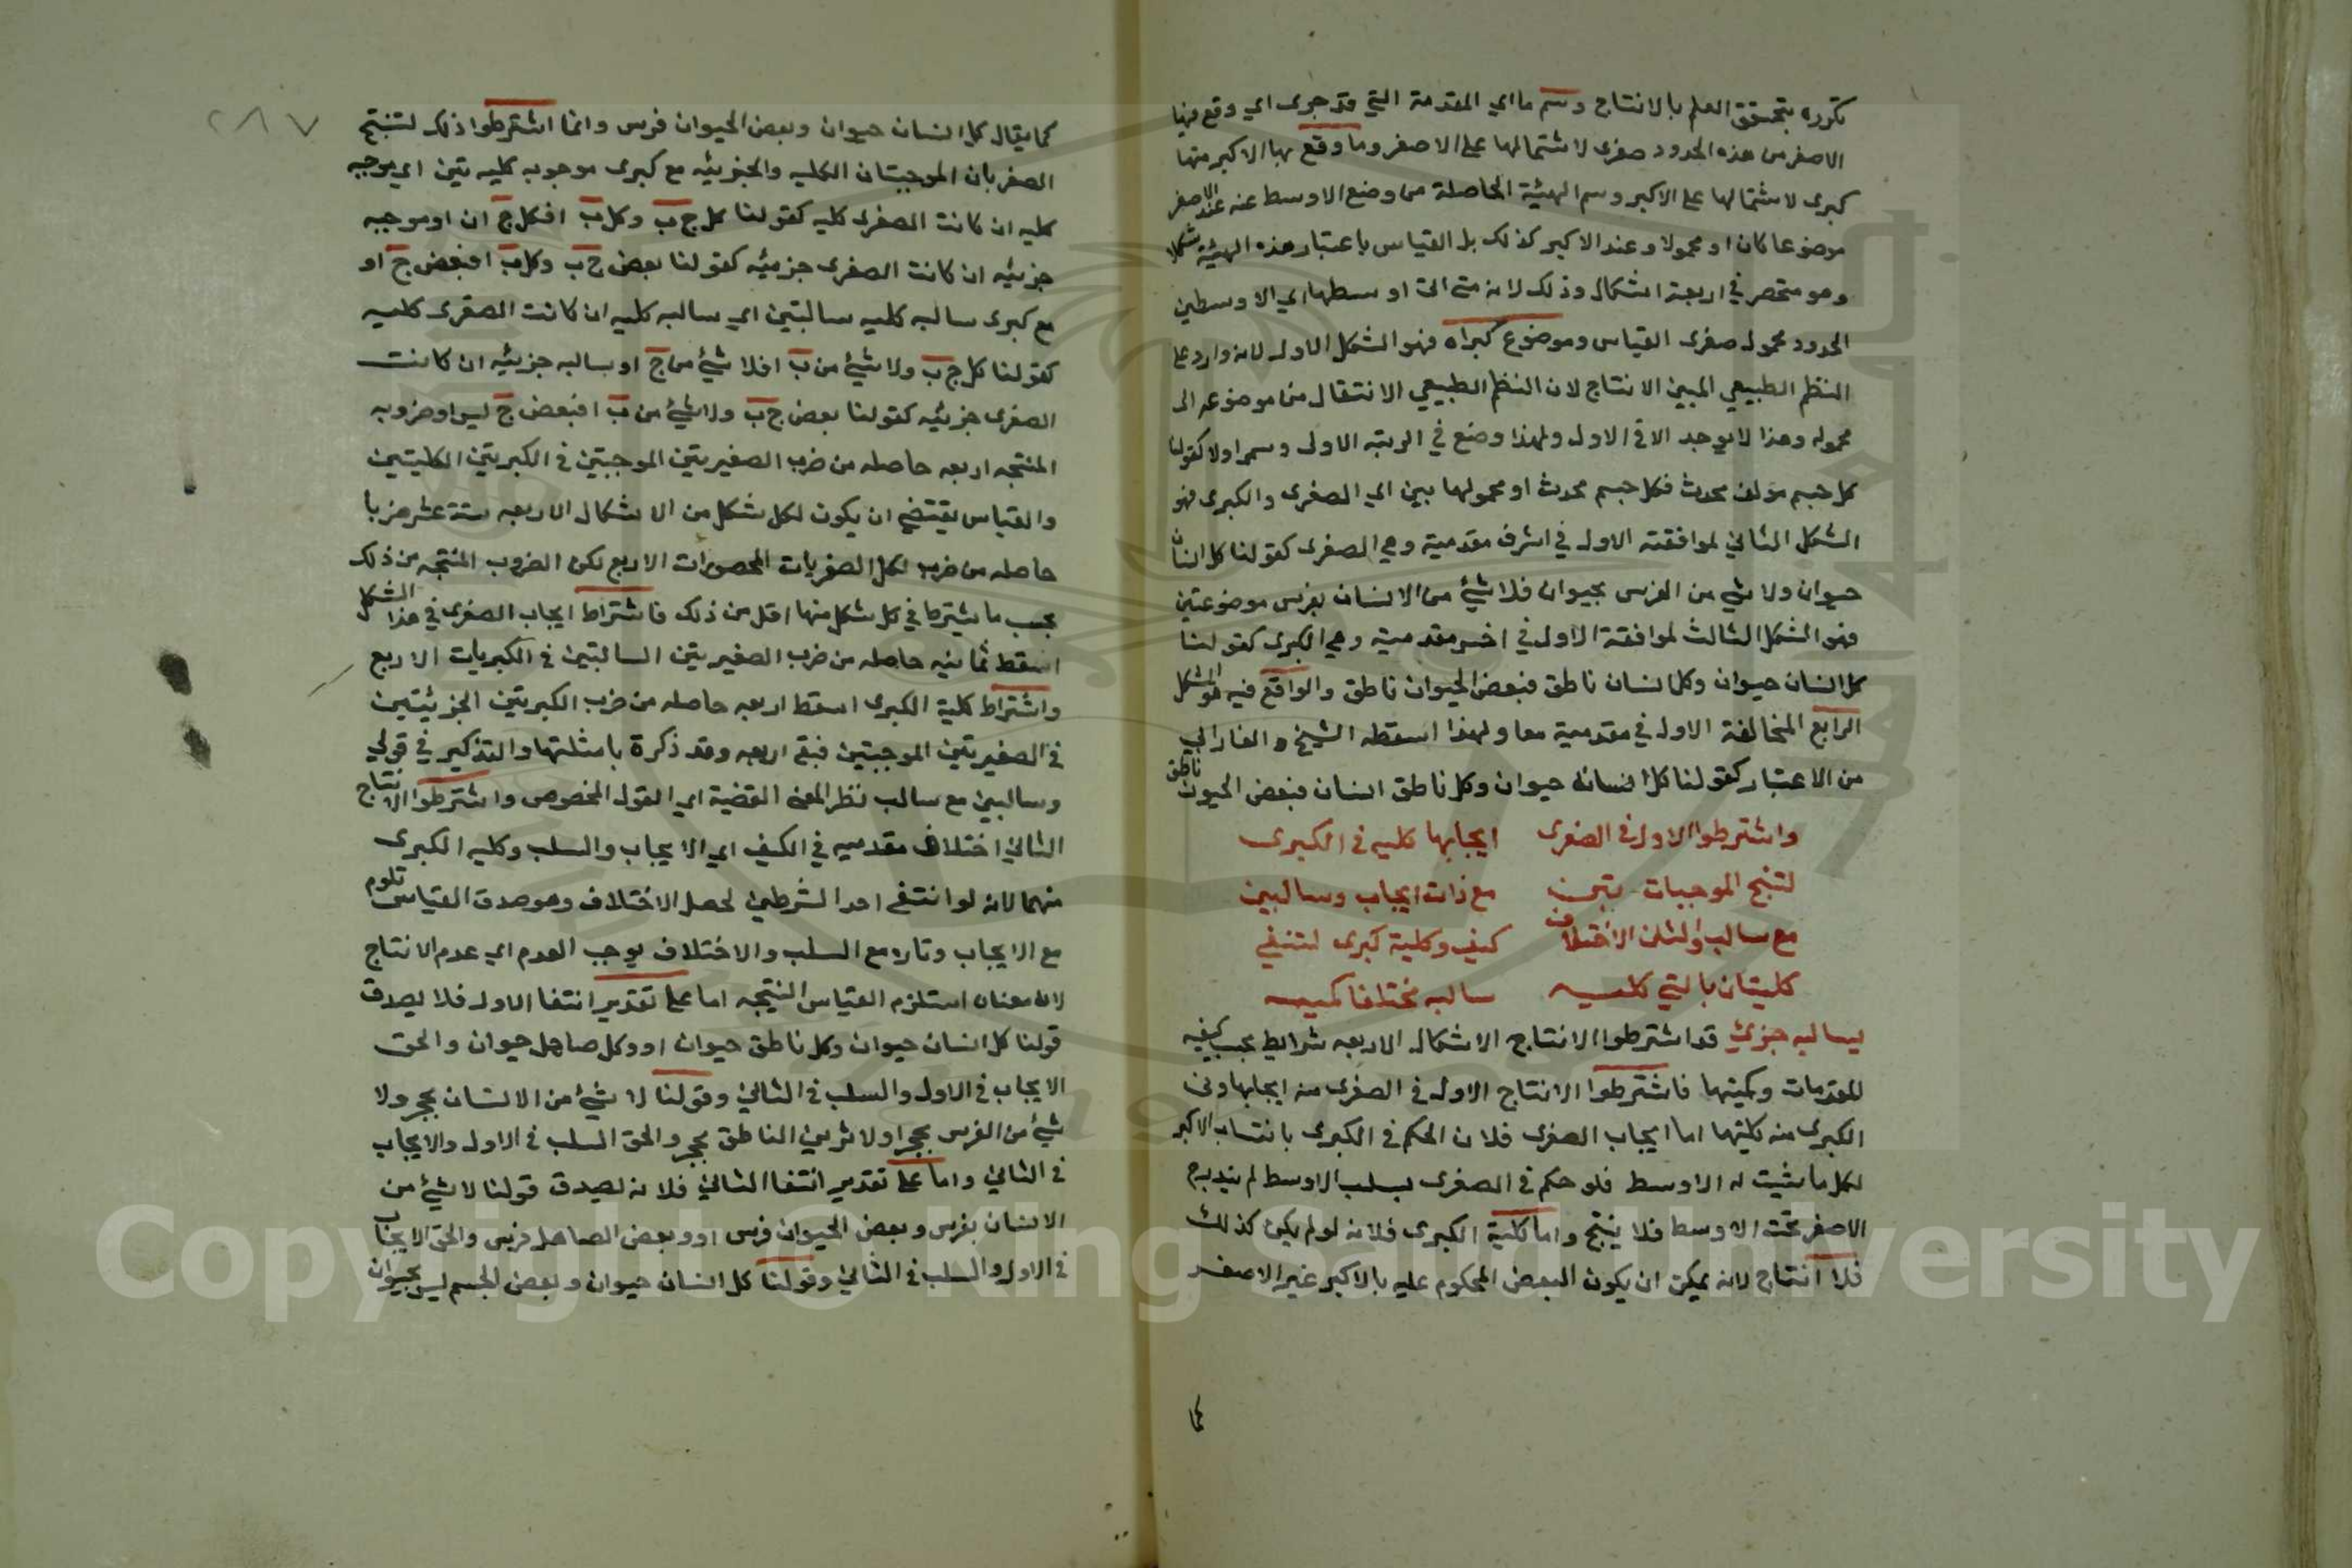 تكرره يتحقق العلم بالانتاج وسم ما اي المقدمة التي قد جرى اي وقع فيها
الاصغر من هذه الحدود صغرى لاشتمالها على الاصغر وما وقع بها الاكبر منها
كبرى لاشتمالها على الاكبر وسم الهيئة الحاصلة من وضع الاوسط عنه عند الاصغر
موضوعا كان او محمولا وعند الاكبر كذلك بل القياس باعتبار هذه الهيئة شكلا
وهو منحصر في اربعة اشكال وذلك لانه متى اتى اوسطها اي الاوسطين
الحدود محمول صغرى القياس وموضوع كبراه فهو الشكل الاول لانه وارد على
النظم الطبيعي المبين الانتاج لان النظم الطبيعي الانتقال من موضوعه الى
محموله وهذا لا يوجد الا في الاول ولهذا وضع في الرتبة الاولى وسمي اولا كقولنا
كل جسم مولف محدث فكل جسم محدث او محمولها بين اي الصغرى والكبرى فهو
الشكل الثاني لموافقته الاول في اشرف مقدميه وهي الصغرى كقولنا كل انسان
حيوان ولا شي من الفرس بحيوان فلا شيء من الانسان بفرس موضوعتين
فهو الشكل الثالث لموافقة الاول في اخس مقدميه وهي الكبرى كقولنا
كل انسان حيوان وكل انسان ناطق فبعض الحيوان ناطق والواقع فيه هو الشكل
الرابع المخالفة الاول في مقدميه معا ولهذا اسقطه الشيخ والفارابي
من الاعتبار كقولنا كل انسان حيوان وكل ناطق انسان فبعض الحيوان ناطق
واشترطوا الاول في الصغرى ايجابها كليه في الكبرى
لتنج الموجبات بتين مع ذات ايجاب وسالبين
مع سالب والثان الاختلاف كيف وكلية كبرى لتنفي
كليتان بالتي كليه سالبه مختلفا كميه
لسالبه جزئ قد اشترطوا الانتاج الاشكال الاربعه شرايط بحسب كيفيه
المقدمات وكميتها فاشترطوا الانتاج الاول في الصغرى منه ايجابها وفى
الكبرى منه كليتها اما ايجاب الصغرى فلان الحكم في الكبرى بانتساب الاكبر
لكل ما ثبت له الاوسط فلو حكم في الصغرى بسلب الاوسط لم يندرج
الاصغر تحت الاوسط فلا ينتج واما كلية الكبرى فلانه لو لم يكن كذلك
فلا انتاج لانه يمكن ان يكون البعض المحكوم عليه بالاكبر غير الاصغر
كما
٢٨٧
كما يقال كل انسان حيوان وبعض الحيوان فرس وانما اشترطوا ذلك لتنتج
الصغريان الموجبتان الكليه والجزئيه مع كبرى موجوبه كليه تين اي موجبه
كليه ان كانت الصغرى كليه كقولنا كل ج ب وكل ب ا فكل ج ا او موجبه
جزئيه ان كانت الصغرى جزئيه كقولنا بعض ج ب وكل ب ا فبعض ج ا و
مع كبرى سالبه كليه سالبتين اي سالبه كليه ان كانت الصغرى كليه
كقولنا كل ج ب ولا شيء من ب ا فلا شيء من ج ا و سالبه جزئيه ان كانت
الصغرى جزئيه كقولنا بعض ج ب ولا شيء من ب ا فبعض ج ليس ا وضروبه
المنتجه اربعه حاصله من ضرب الصغيريتين الموجبتين في الكبريتين الكليتين
والقياس يقتضي ان يكون لكل شكل من الاشكال الاربعه ستة عشر ضربا
حاصله من ضرب لكل الصغريات المحصورات الاربع لكن الضروب المنتجه من ذلك
بحسب ما يشترط في كل شكل منها اقل من ذلك فاشتراط ايجاب الصغرى في هذا الشكل
اسقط ثمانيه حاصله من ضرب الصغيريتين السالبتين في الكبريات الاربع
واشتراط كلية الكبرى اسقط اربعه حاصله من ضرب الكبريتين الجزئيتين
في الصغيريتين الموجبتين فبقي اربعه وقد ذكرة بامثلتها والتذكير في قولي
وسالبين مع سالب نظر المعنى القضية اي القول المخصوص واشترطوا الانتاج
الثاني اختلاف مقدميه في الكيف اي الايجاب والسلب وكليه الكبرى
منهما لانه لو انتفى احد الشرطين لحصل الاختلاف وهو صدق القياس
مع الايجاب وتاره مع السلب والاختلاف يوجب العدم اي عدم الانتاج
لان معناه استلزم القياس النتيجه اما على تقدير انتفا الاول فلا يصدق
قولنا كل انسان حيوان وكل ناطق حيوان او وكل صاهل حيوان والحق
الايجاب في الاول والسلب في الثاني وقولنا لا شيء من الانسان بحجر ولا
شيء من الفرس بحجر او لا شي من الناطق بحجر والحق السلب في الاول والايجاب
في الثاني واما على تقدير انتفا الثاني فلانه لصدق قولنا لا شيء من
الانسان بفرس وبعض الحيوان فرس او وبعض الصاهل فرس والحق الايجاب
في الاول والسلب في الثاني وقولنا كل انسان حيوان وبعض الجسم ليس بحيوان
Copyright © King Saud University